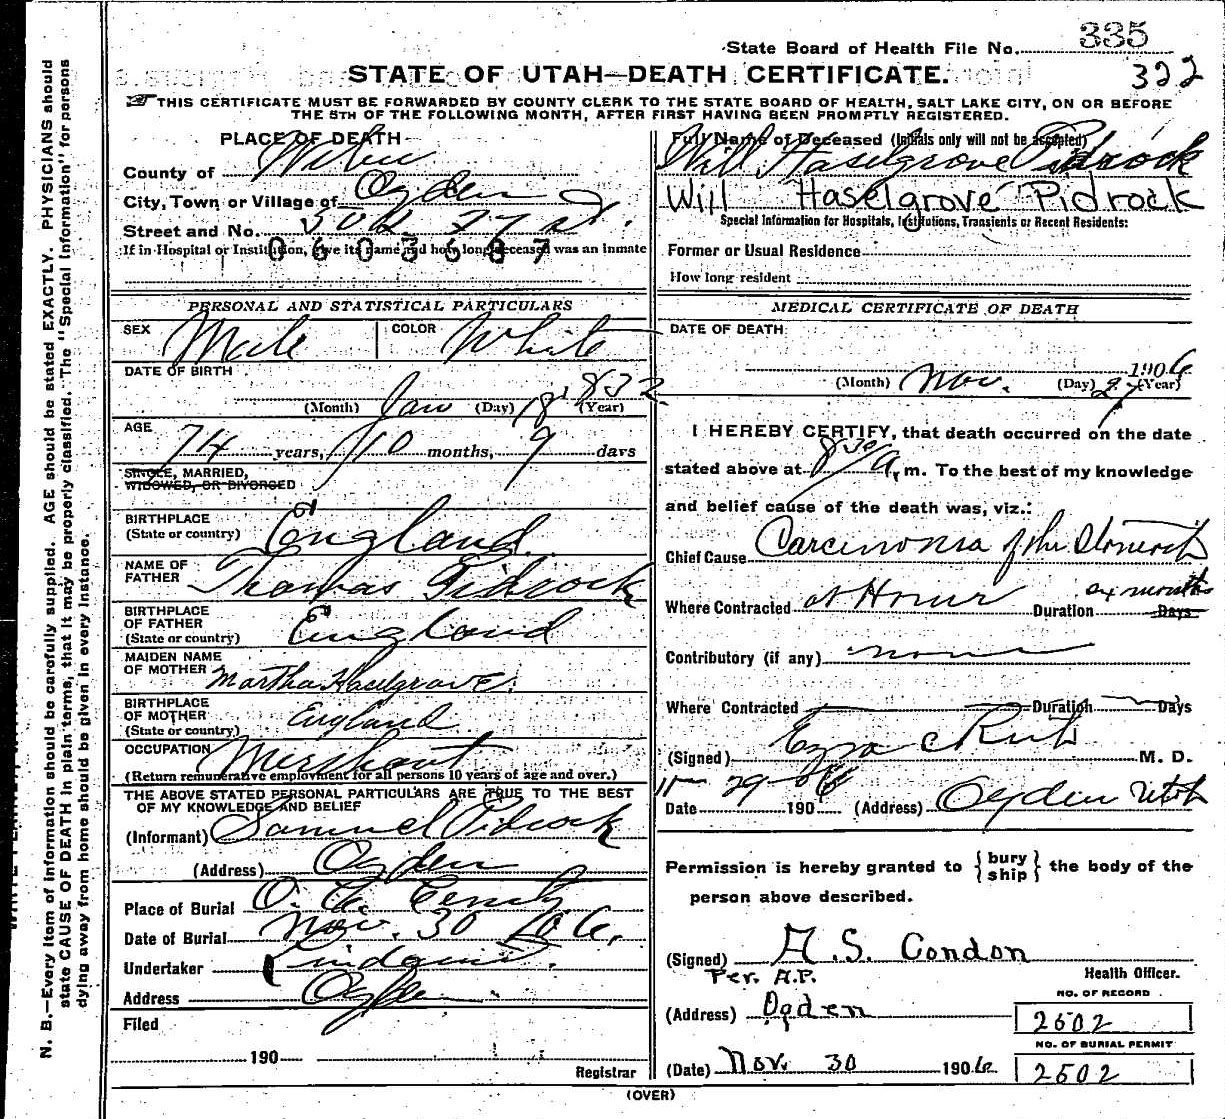 335
State Board of Health File No.
STATE OF UTAH—DEATH CERTIFICATE.
322
THIS CERTIFICATE MUST BE FORWARDED BY COUNTY CLERK TO THE STATE BOARD OF HEALTH, SALT LAKE CITY, ON OR BEFORE
THE 5TH OF THE FOLLOWING MONTH, AFTER FIRST HAVING BEEN PROMPTLY REGISTERED.
PLACE OF DEATH
County of Weber
City, Town or Village of Ogden
Street and No. 27 St.
If in Hospital or Institution, give its name and how long deceased was an inmate
0603687
Full Name of Deceased (Initials only will not be accepted)
Will Haselgrove Pidcock
Will Haselgrove Pidrock
Special Information for Hospitals, Institutions, Transients or Recent Residents:
Former or Usual Residence
How long resident
PERSONAL AND STATISTICAL PARTICULARS
SEX Male COLOR White
DATE OF BIRTH
(Month) Jan (Day) 18 1832 (Year)
AGE
74 years, 10 months, 9 days
SINGLE, MARRIED,
WIDOWED, OR DIVORCED
BIRTHPLACE
(State or country) England
NAME OF
FATHER Thomas Pidcock
BIRTHPLACE
OF FATHER
(State or country) England
MAIDEN NAME
OF MOTHER Martha Haselgrove
BIRTHPLACE
OF MOTHER
(State or country) England
OCCUPATION Merchant
(Return remunerative employment for all persons 10 years of age and over.)
THE ABOVE STATED PERSONAL PARTICULARS ARE TRUE TO THE BEST
OF MY KNOWLEDGE AND BELIEF
(Informant) Samuel Pidcock
(Address) Ogden
Place of Burial O. C. Cemty
Date of Burial Nov. 30 1906.
Undertaker Lindquist.
Address Ogden
Filed
190
Registrar
MEDICAL CERTIFICATE OF DEATH
DATE OF DEATH
(Month) Nov. (Day) 27 1906 (Year)
I HEREBY CERTIFY, that death occurred on the date
stated above at 8 30/ A. m. To the best of my knowledge
and belief cause of the death was, viz.:
Chief Cause Carcinoma of the Stomach
Where Contracted at Home Duration six months Days
Contributory (if any) none
Where Contracted Duration Days
(Signed) Ezra C Rich M. D.
Date 11-29-06 190 (Address) Ogden Utah
Permission is hereby granted to { bury
ship } the body of the
person above described.
(Signed) H. S. Condon
Per. A.P. Health Officer.
(Address) Ogden
NO. OF RECORD
2502
NO. OF BURIAL PERMIT
2502
(Date) Nov. 30 1906
(OVER)
N. B.—Every item of information should be carefully supplied. AGE should be stated EXACTLY. PHYSICIANS should
state CAUSE OF DEATH in plain terms, that it may be properly classified. The "Special Information" for persons
dying away from home should be given in every instance.